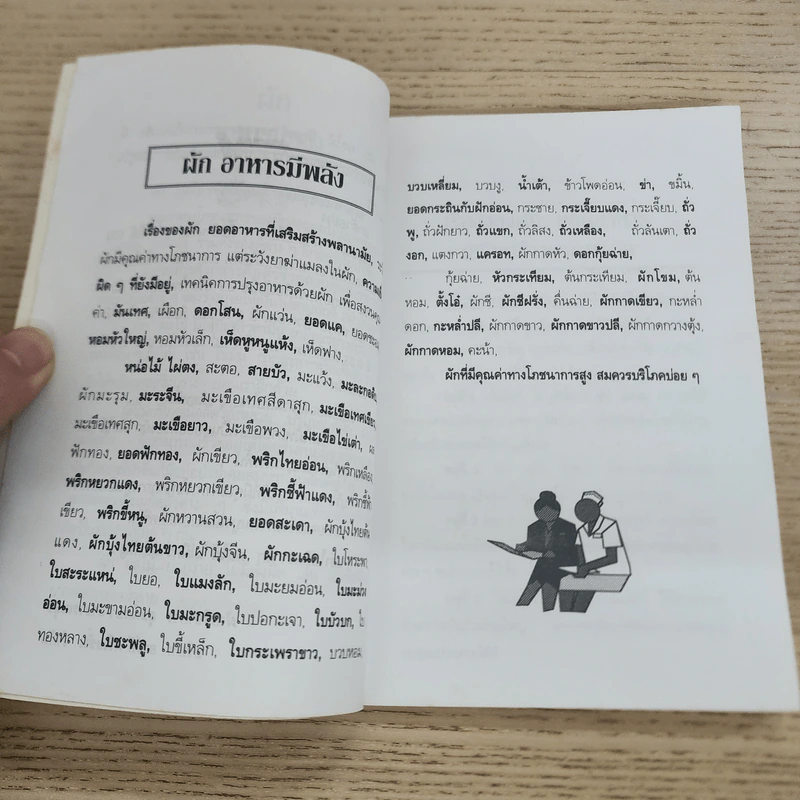 ผัก อาหารมีพลัง
เรื่องของผัก ยอดอาหารที่เสริมสร้างพลานามัย,
ผักมีคุณค่าทางโภชนาการ แต่ระวังยาฆ่าแมลงในผัก,
ผิด ๆ ที่ยังมีอยู่, เทคนิคการปรุงอาหารด้วยผัก
ค่า, มันเทศ, เผือก, ดอกโสน, ผักแว่น, ยอดแค,
หอมหัวใหญ่, หอมหัวเล็ก, เห็ดหูหนูแห้ง, เห็ดฟาง,
หน่อไม้ ไผ่ตง, สะตอ, สายบัว, มะแว้ง,
ผักมะรุม, มะระจีน, มะเขือเทศสีดาสุก,
มะเขือเทศสุก, มะเขือยาว, มะเขือพวง, มะเขือไข่เต่า,
ฟักทอง, ยอดฟักทอง, ผักเขียว, พริกไทยอ่อน, พริกเหลือง
พริกหยวกแดง, พริกหยวกเขียว, พริกชี้ฟ้าแดง,
เขียว, พริกขี้หนู, ผักหวานสวน, ยอดสะเดา, ผักบุ้งไทยต้น
แดง, ผักบุ้งไทยต้นขาว, ผักบุ้งจีน, ผักกะเฉด,
ใบสะระแหน่, ใบยอ, ใบแมงลัก, ใบมะยมอ่อน,
อ่อน, ใบมะขามอ่อน, ใบมะกรูด, ใบปอกะเจา, ใบบัวบก,
ทองหลาง, ใบชะพลู, ใบขี้เหล็ก, ใบกระเพราขาว, บวบหอม,
บวบเหลี่ยม, บวบงู, น้ำเต้า, ข้าวโพดอ่อน, ข่า, ขมิ้น,
ยอดกระถินกับฝักอ่อน, กระชาย, กระเจี๊ยบแดง, กระเจี๊ยบ, ถั่ว
พู, ถั่วฝักยาว, ถั่วแขก, ถั่วลิสง, ถั่วเหลือง, ถั่วลันเตา, ถั่ว
งอก, แตงกวา, แครอท, ผักกาดหัว, ดอกกุ้ยฉ่าย,
กุ้ยฉ่าย, หัวกระเทียม, ต้นกระเทียม, ผักโขม, ต้น
หอม, ตั้งโอ๋, ผักชี, ผักชีฝรั่ง, คื่นฉ่าย, ผักกาดเขียว, กะหล่ำ
ดอก, กะหล่ำปลี, ผักกาดขาว, ผักกาดขาวปลี, ผักกาดกวางตุ้ง,
ผักกาดหอม, คะน้า,
ผักที่มีคุณค่าทางโภชนาการสูง สมควรบริโภคบ่อย ๆ